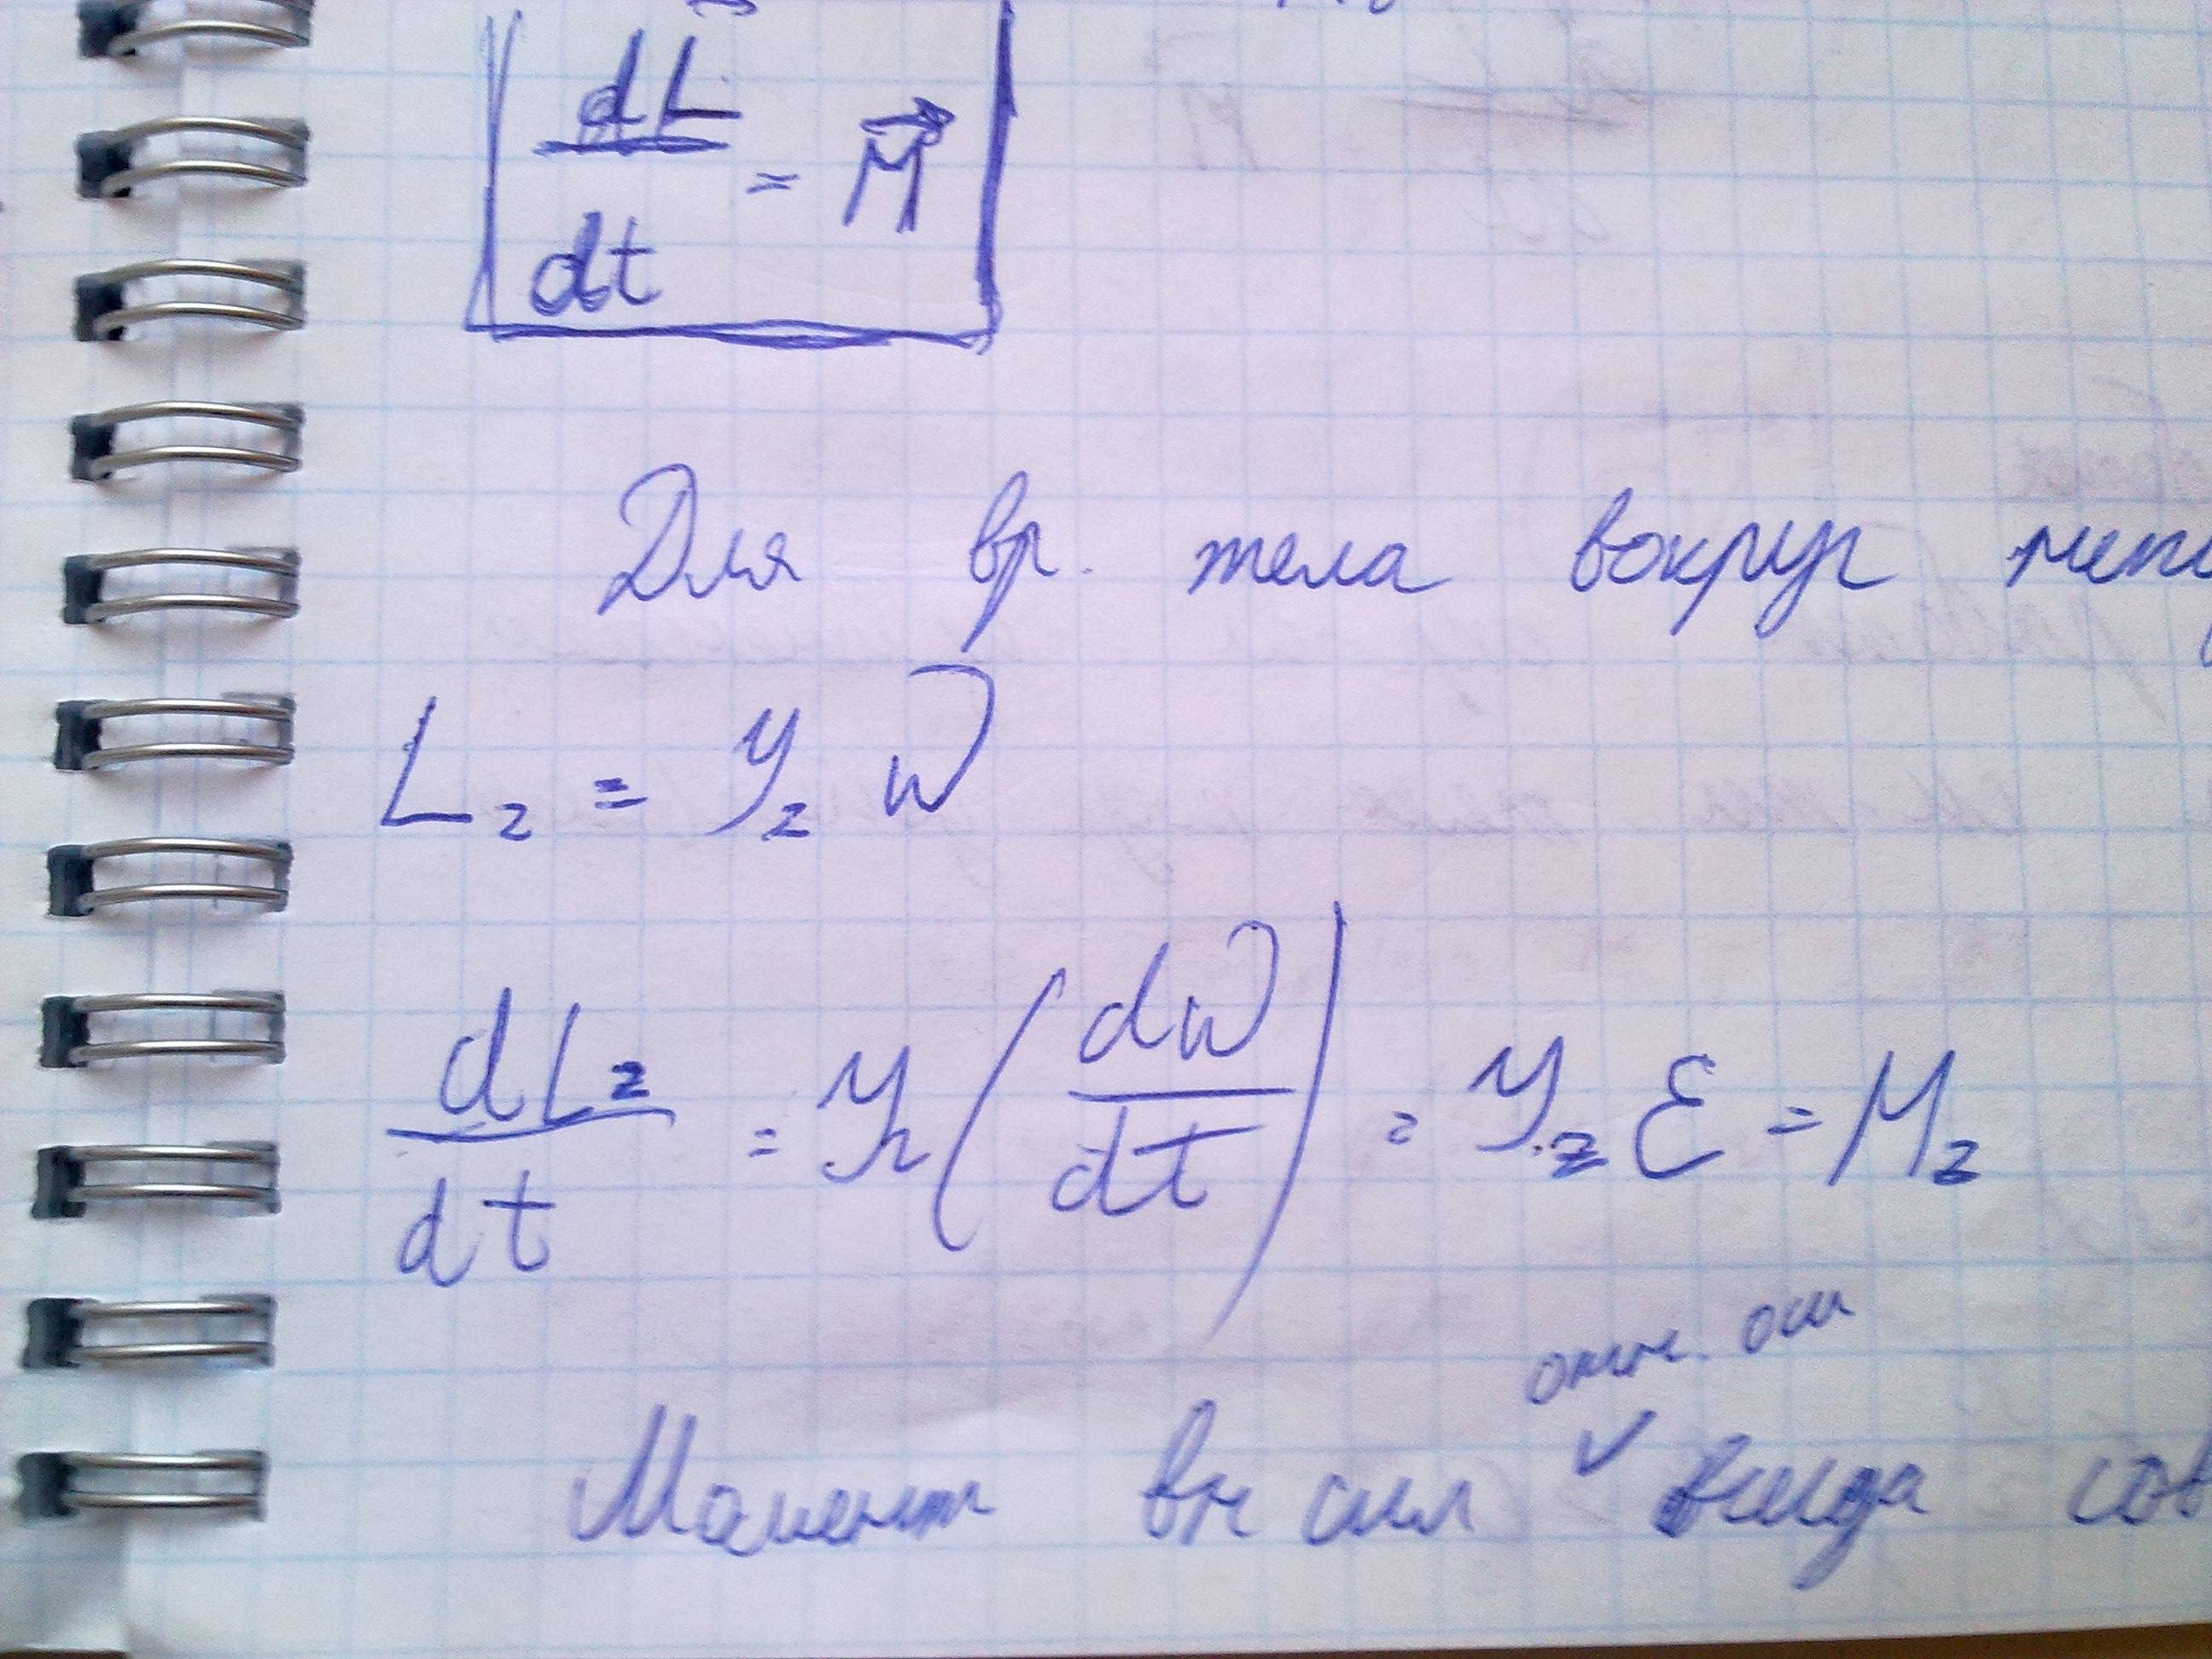 dL⃗/dt = M⃗
Для вр. тела вокруг
L_z = Y_z ω
dL_z/dt = Y_z (dω/dt) = Y_z ε = M_z
отн. оси
Момент вн сил ✓ всегда сов